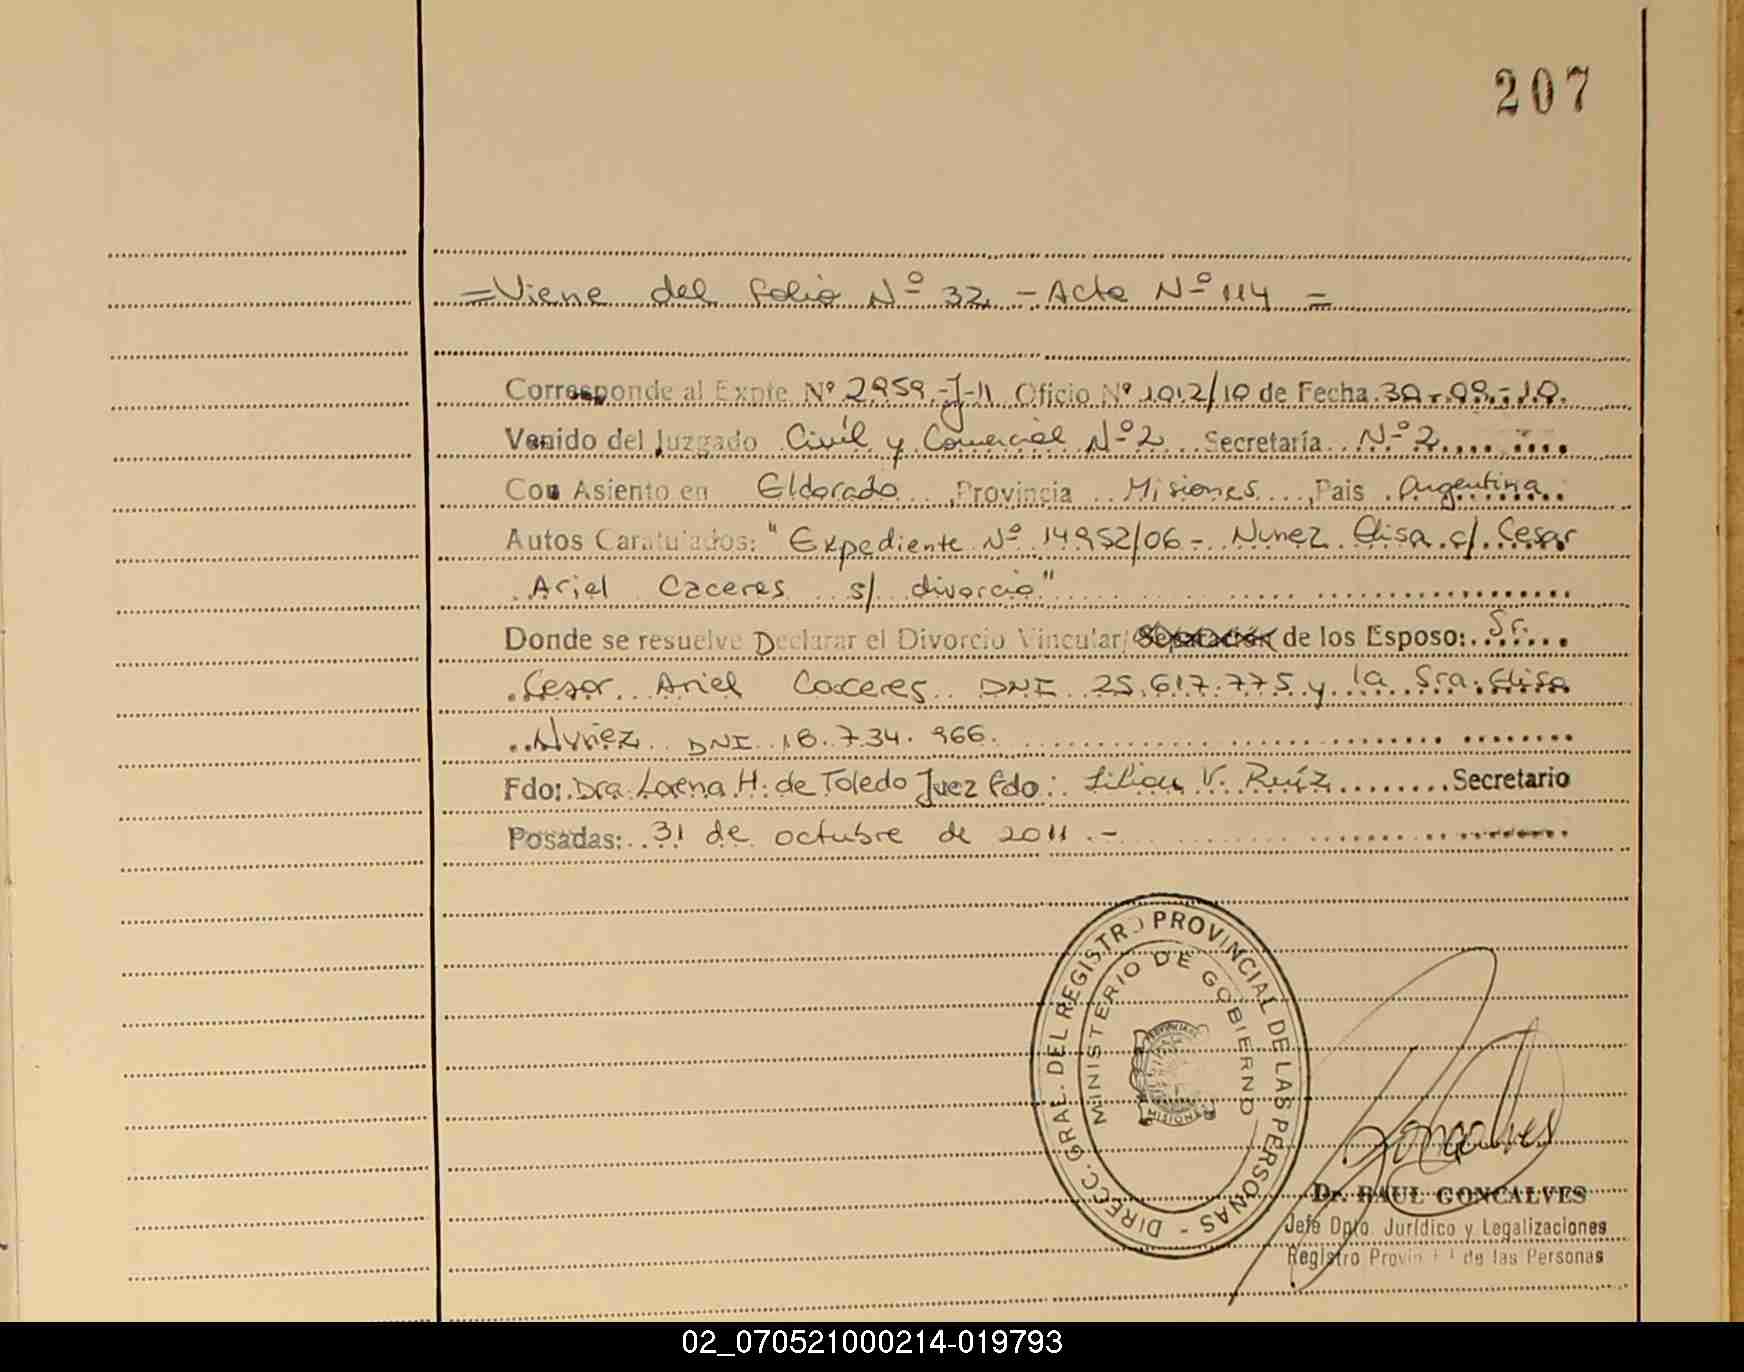 207
=Viene del folio Nº 32 - Acta Nº 114 =
Corresponde al Expte. Nº 2959-J-11 Oficio Nº 1012/10 de Fecha 30-09-10.
Venido del Juzgado Civil y Comercial Nº 2 Secretaría Nº 2
Con Asiento en Eldorado, Provincia Misiones, Pais Argentina
Autos Caratulados: "Expediente Nº 14952/06 - Nunez Elisa c/ Cesar
Ariel Caceres s/ divorcio"
Donde se resuelve Declarar el Divorcio Vincular/Separación de los Esposo: Sr.
Cesar Ariel Caceres DNI 25.617.775 y la Sra. Elisa
Nuñez DNI 18.734.966.
Fdo: Dra Lorena H. de Toledo Juez fdo: Lilian V. Ruíz Secretario
Posadas: 31 de octubre de 2011.-
DIREC. GRAL. DEL REGISTRO PROVINCIAL DE LAS PERSONAS -
MINISTERIO DE GOBIERNO
MISIONES
Goncalves
Dr. RAUL GONCALVES
Jefe Dpto. Jurídico y Legalizaciones
Registro Provincial de las Personas
02_070521000214-019793